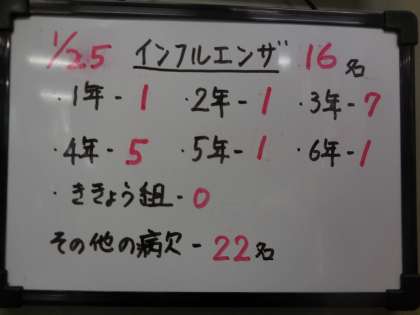 1/25 インフルエンザ 16名
・1年-1 ・2年-1 ・3年-7
・4年-5 ・5年-1 ・6年-1
・ききょう組-0
その他の病欠-22名